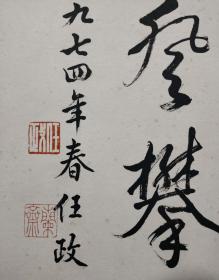 風攀
九七四年春任政